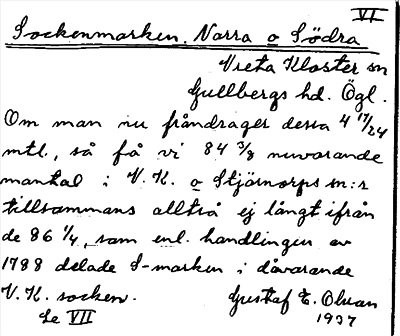 VI
Sockenmarken. Norra o Södra
Vreta Kloster sn
Gullbergs hd. Ögl.
Om man nu fråndrager dessa 4 17/24
mtl., så få vi 84 3/8 nuvarande
mantal i V. K. o Stjärnorps sn:r
tillsammans alltså ej långt ifrån
de 86 1/4, som enl. handlingen av
1788 delade S-marken i dåvarande
V. K. socken. Gustaf E. Olsson
Se VII 1937